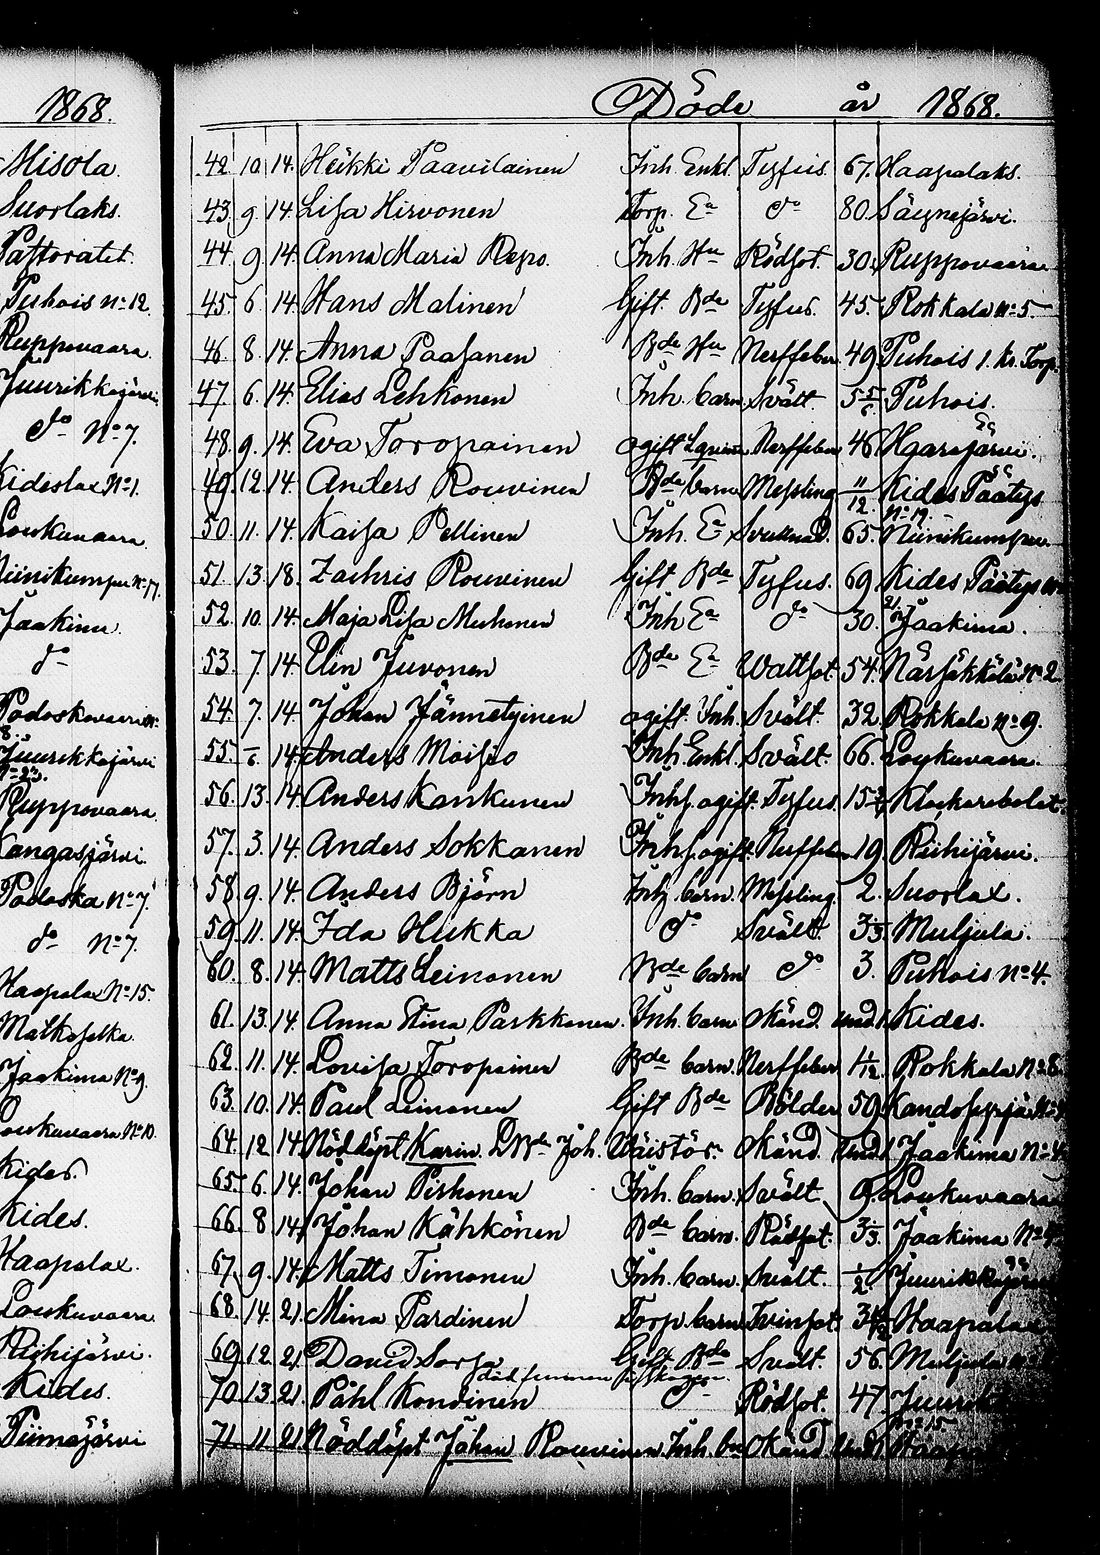 1868.
Misola.
Suorlaks.
Pastoratet.
Puhois No 12.
Ruppovaara.
Juurikkajärvi
do No 7.
Kideslax No 1.
Loukuvaara.
Niinikumpu No 17.
Jaakima.
do
Podoska
Juurikkajärvi
No 23.
Ruppovaara
Kangasjärvi
Podoska No 7.
do No 7.
Haapalax No 15.
Matkaselkä
Jaakima No 9.
Loukuvaara No 10.
Kides.
Kides.
Haapalax.
Loukuvaara
Riihijärvi.
Kides.
Piimäjärvi
Döde år 1868.
42. 10. 14. Heikki Paavilainen Inh. Enkl. Tyfus. 67. Haapalaks.
43. 9. 14. Lisa Hirvonen Torp. Ea do 80. Säynejärvi.
44. 9. 14. Anna Maria Repo. Inh. Hu Rödsot. 30. Ruppovaara
45. 6. 14. Hans Malinen Gift. Bde Tyfus. 45. Rokkala No 5.
46. 8. 14. Anna Paasanen Bde Hu Nerffeber 49 Puhois 1. Kr. Torp.
47. 6. 14. Elias Lehkonen Inh. barn Svält. 5 5/6 Puhois.
48. 9. 14. Eva Toropainen ogift Nerffeber 46 Haarajärvi.
49. 12. 14. Anders Rouvinen Bde barn Messling 11/12 Kides Päätys
No 19
50. 11. 14. Kaisa Pellinen Inh. Ea 65. Niinikumpu.
51. 13. 18. Zachris Rouvinen Gift Bde Tyfus. 69. Kides Päätys No
21.
52. 10. 14. Maja Lisa Muhonen Inh Ea do 30. Jaakima.
53. 7. 14. Elin Juvonen Bde Ea Wattsot. 54. Närsäkkälä No 2
54. 7. 14. Johan Jännetyinen ogift. Inh. Svält. 32. Rokkala No 9.
55. 6. 14. Anders Moisio Inh. Enkl. Svält. 66. Loukuvaara.
56. 13. 14. Anders Kankunen Inhs. ogift. Tyfus. 15 Klockarebolet.
57. 3. 14. Anders Sokkanen Inhs. ogift. Nerffeber 19. Riihijärvi.
58. 9. 14. Anders Björn Inh. barn. Messling. 2. Suorlax.
59. 11. 14. Ida Hukka do Svält. 3 Muljula.
60. 8. 14. Matts Leinonen Bde barn do 3. Puhois No 4.
61. 13. 14. Anna Stina Parkkonen. Inh. barn Okänd. und. 1. Kides.
62. 11. 14. Lovisa Toropainen Bde barn. Nerffeber 1 1/12. Rokkala No 8.
63. 10. 14. Paul Leinonen Gift Bde Bölder 59.
64. 12. 14. Nöddöpt Karin. D. Bde Joh. Wäistö: Okänd. und. 1 Jaakima No 4.
65. 6. 14. Johan Pirhonen Inh. barn. Svält. 9. Loukuvaara
66. 8. 14. Johan Kähkönen Bde barn. Rödsot. 3 Jaakima No
67. 9. 14. Matts Timonen Inh. barn. Svält. 1/2. Juurikkajärvi
68. 14. 21. Mina Pardinen Torp. barn Tvinsot. 3 Haapalax
69. 12. 21. David Sorsa Gift. Bde Svält. 56. Muljula
död funnen på skogen
70. 13. 21. Påhl Kondinen do Rödsot. 47. Juurik
No 15.
71. 11. 21. Nöddöpt Johan Rouvinen Inh. bn Okänd. und. 1 Haapa